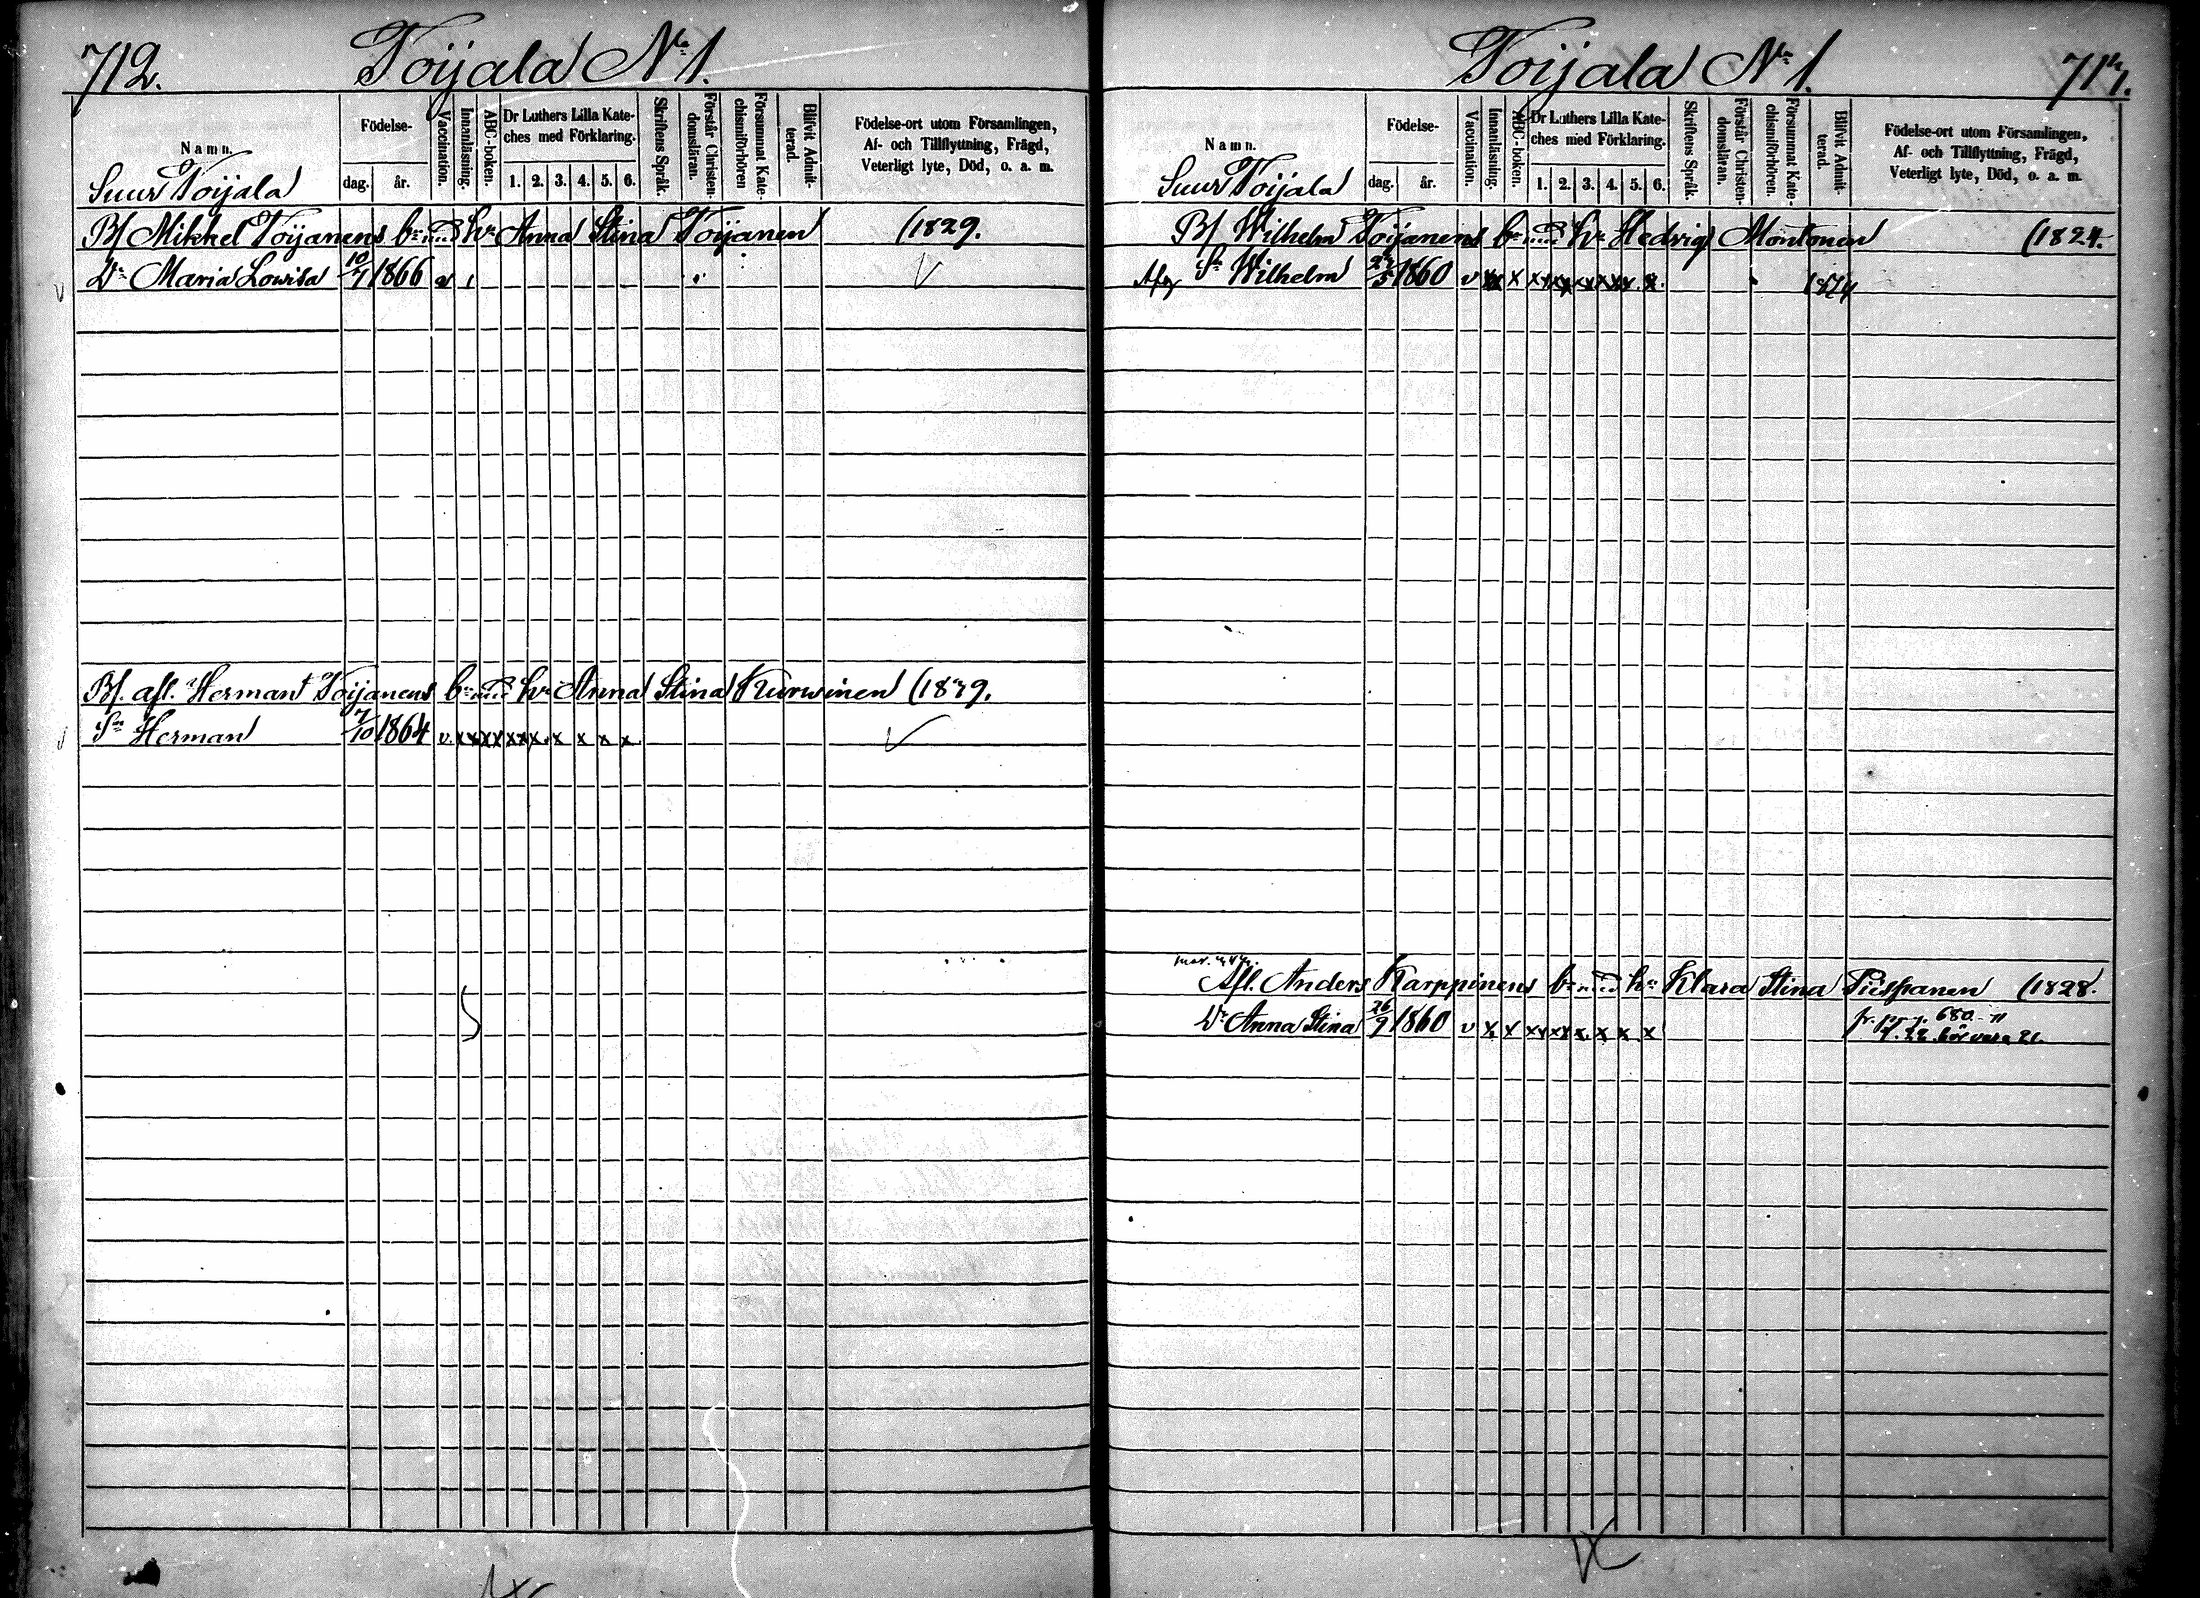 712. Toijala No 1.
Namn.
Suur Toijala
Födelse-
dag. år.
Vaccination.
Innanläsning.
ABC-boken.
Dr Luthers Lilla Kate-
ches med Förklaring.
1. 2. 3. 4. 5. 6.
Skriftens Språk.
Förstår Christen-
domsläran.
Försummat Kate-
chismiförhören
Blifvit Admit-
terad.
Födelse-ort utom Församlingen,
Af- och Tillflyttning, Frägd,
Veterligt lyte, Död, o. a. m.
Bf Mikkel Toijanens bn med hu Anna Stina Toijanen (1829.
Dr Maria Lowisa 10/7 1866
Bf. afl. Herman Toijanens bn med hu Anna Stina Kurwinen (1839.
Sn Herman 7/10 1864 v. x x x x x x x x x x x
Toijala No 1.
Namn.
Suur Toijala
Födelse-
dag. år.
Vaccination.
Innanläsning.
ABC-boken.
Dr Luthers Lilla Kate-
ches med Förklaring.
1. 2. 3. 4. 5. 6.
Skriftens Språk.
Förstår Christen-
domsläran.
Försummat Kate-
chismiförhören.
Blifvit Admit-
terad.
Födelse-ort utom Församlingen,
Af- och Tillflyttning, Frägd,
Veterligt lyte, Död, o. a. m.
Bf Wilhelm Toijanens bn med hu Hedvig Montonen (1824.
Sn Wilhelm 1860 v
Afl. Anders Karppinens bn med hu Klara Stina Piispanen (1828.
Dr Anna Stina 26/9 1860 v x x x x x x x x x x 680
bör vara 21.